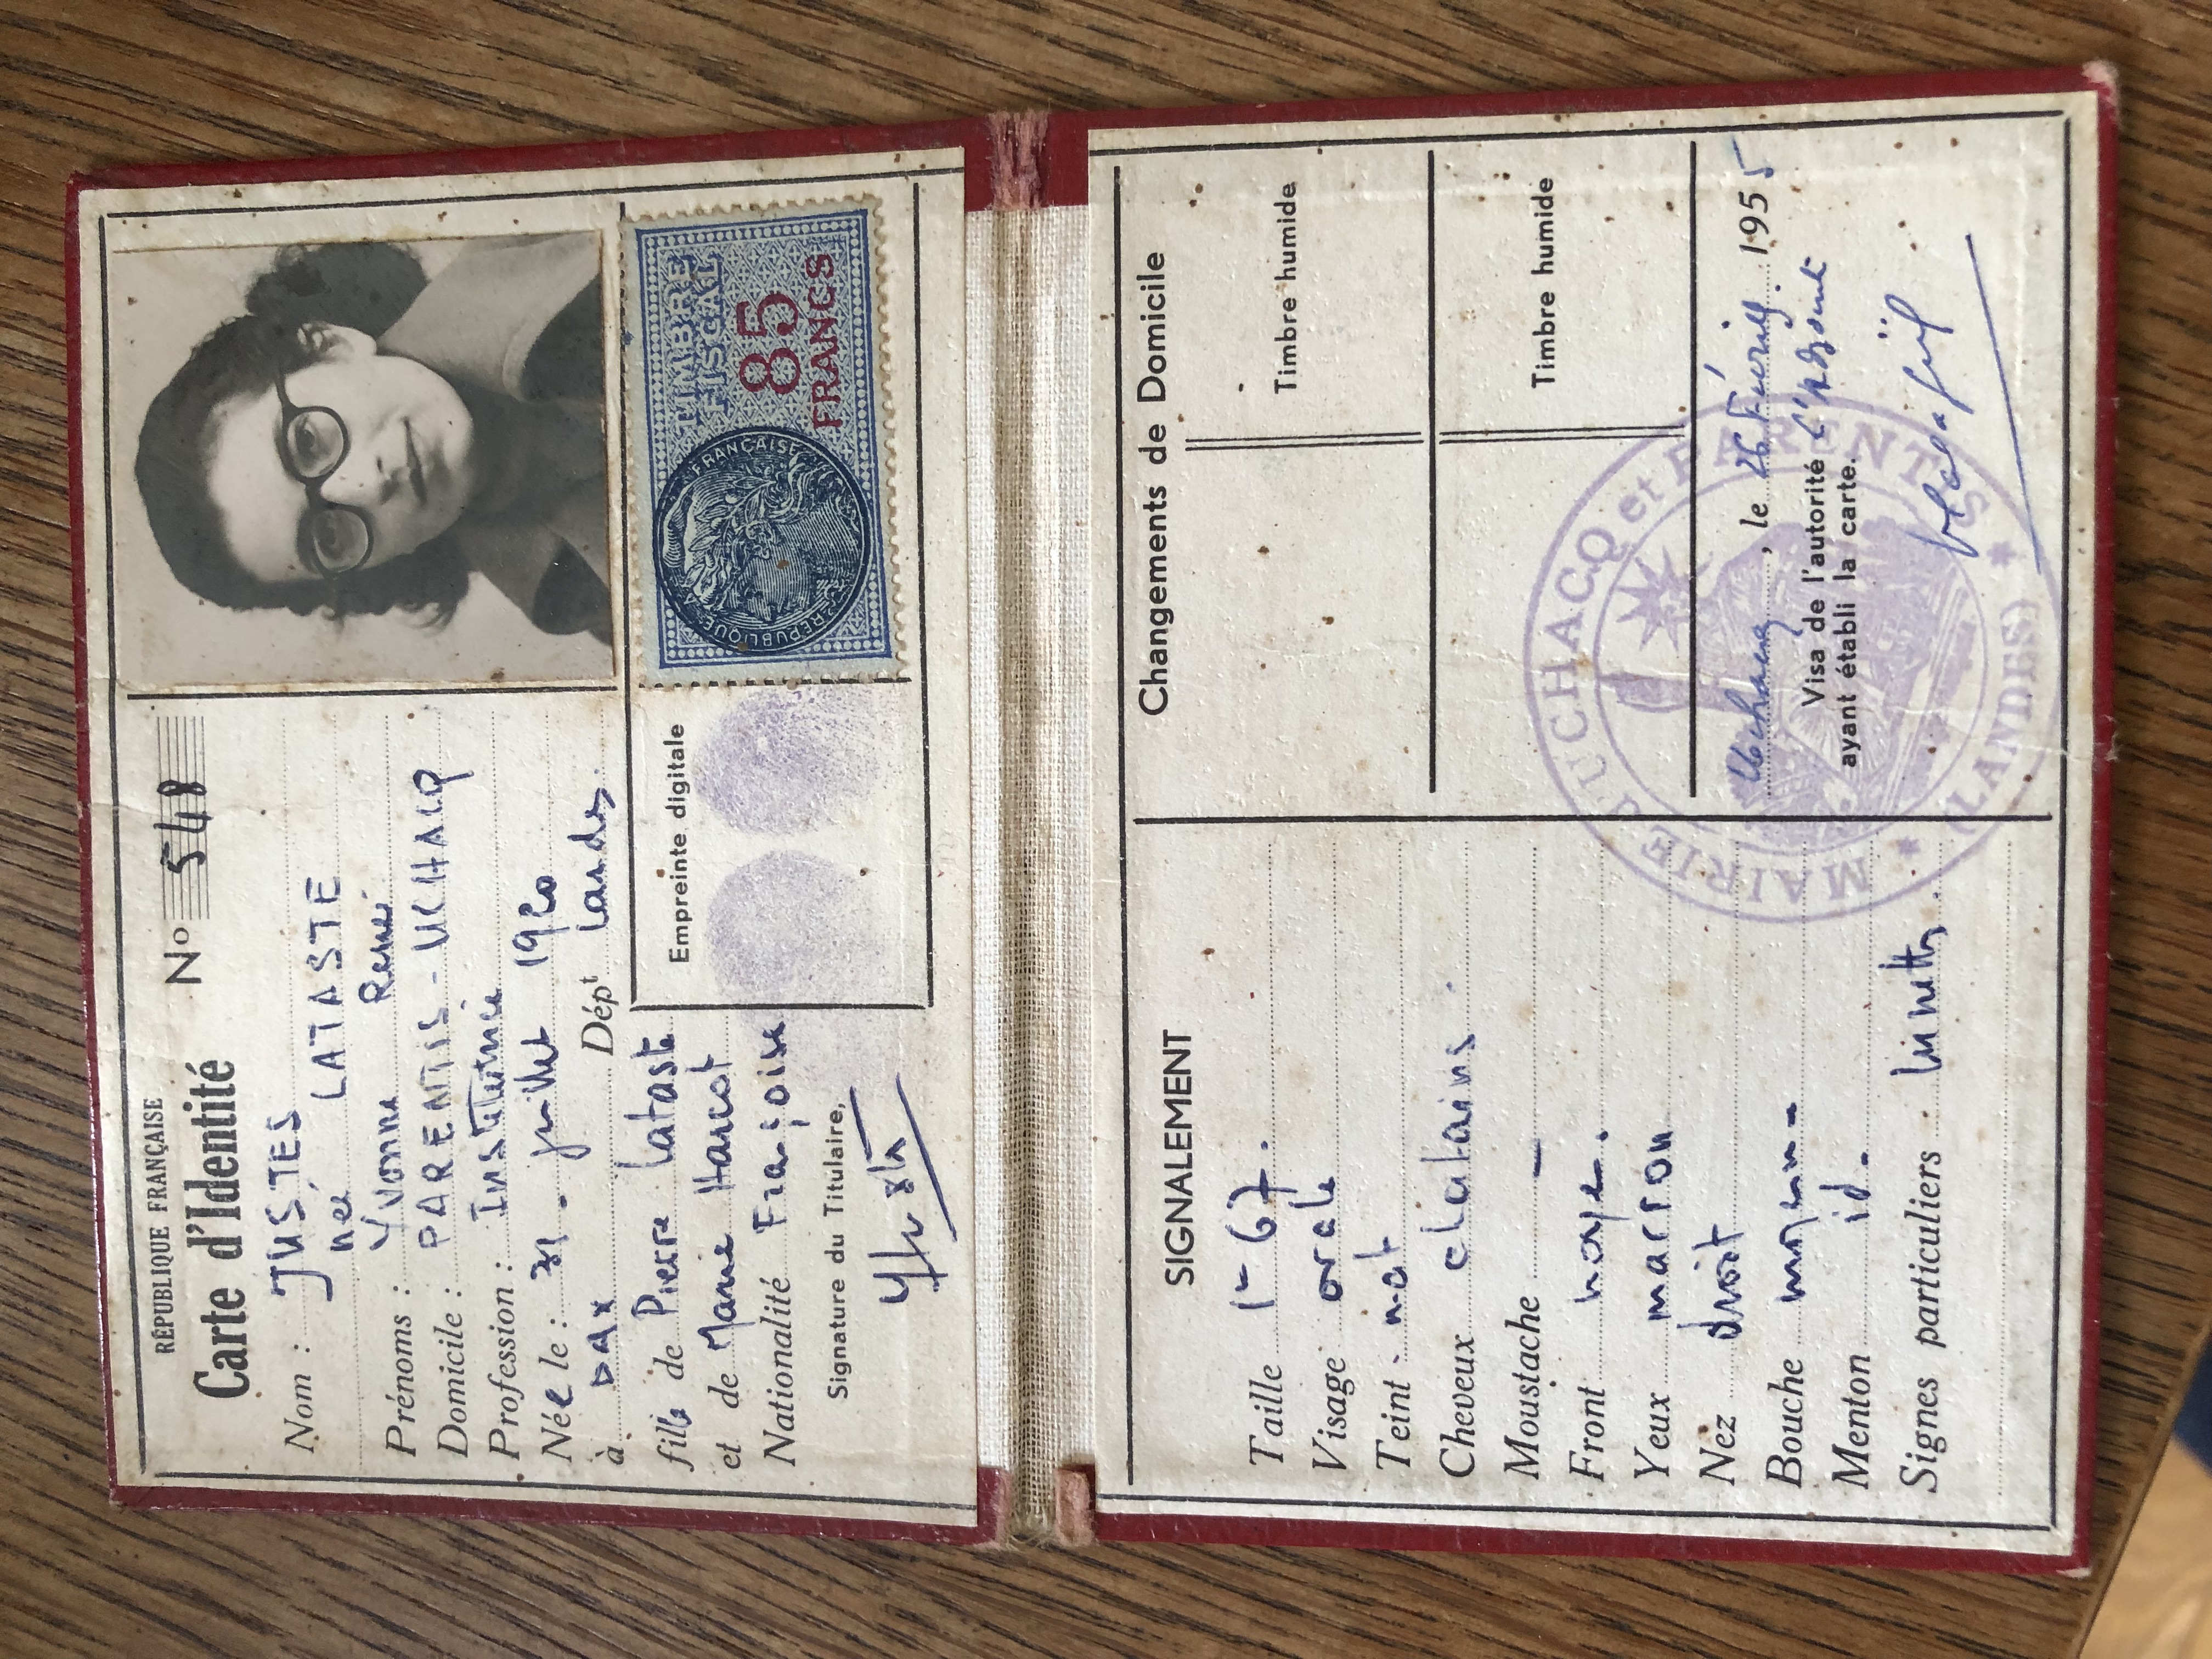 RÉPUBLIQUE FRANÇAISE
Carte d'Identité
N° 548
Nom : JUSTES
née LATASTE
Prénoms : Yvonne René
Domicile : PARENTIS - UCHACQ
Profession : Institutrice
Née le : 31 - juillet 1920
à DAX Dépt Landes.
fille de Pierre Lataste
et de Marie Harcot
Nationalité Française
Signature du Titulaire,
Empreinte digitale
TIMBRE
FISCAL
85
FRANCS
RÉPUBLIQUE FRANÇAISE
SIGNALEMENT
Taille 1m 67.
Visage ovale
Teint mat
Cheveux chatains.
Moustache —
Front moyen.
Yeux marron
Nez droit
Bouche moyenne
Menton id.
Signes particuliers lunettes
Changements de Domicile
Timbre humide
Timbre humide
Uchacq, le 26 Février 1955
Visa de l'autorité L'Adjoint
ayant établi la carte.
MAIRIE d'UCHACQ et PARENTIS
(LANDES)